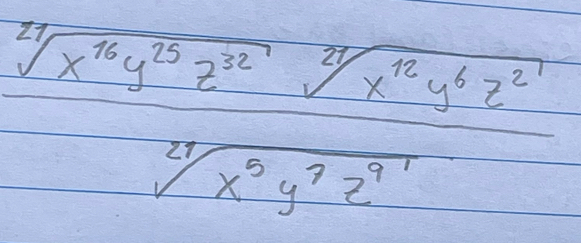 \frac{\sqrt[21]{x^{16} y^{25} z^{32}} \sqrt[21]{x^{12} y^{6} z^{2}}}{\sqrt[21]{x^{5} y^{7} z^{9}}}